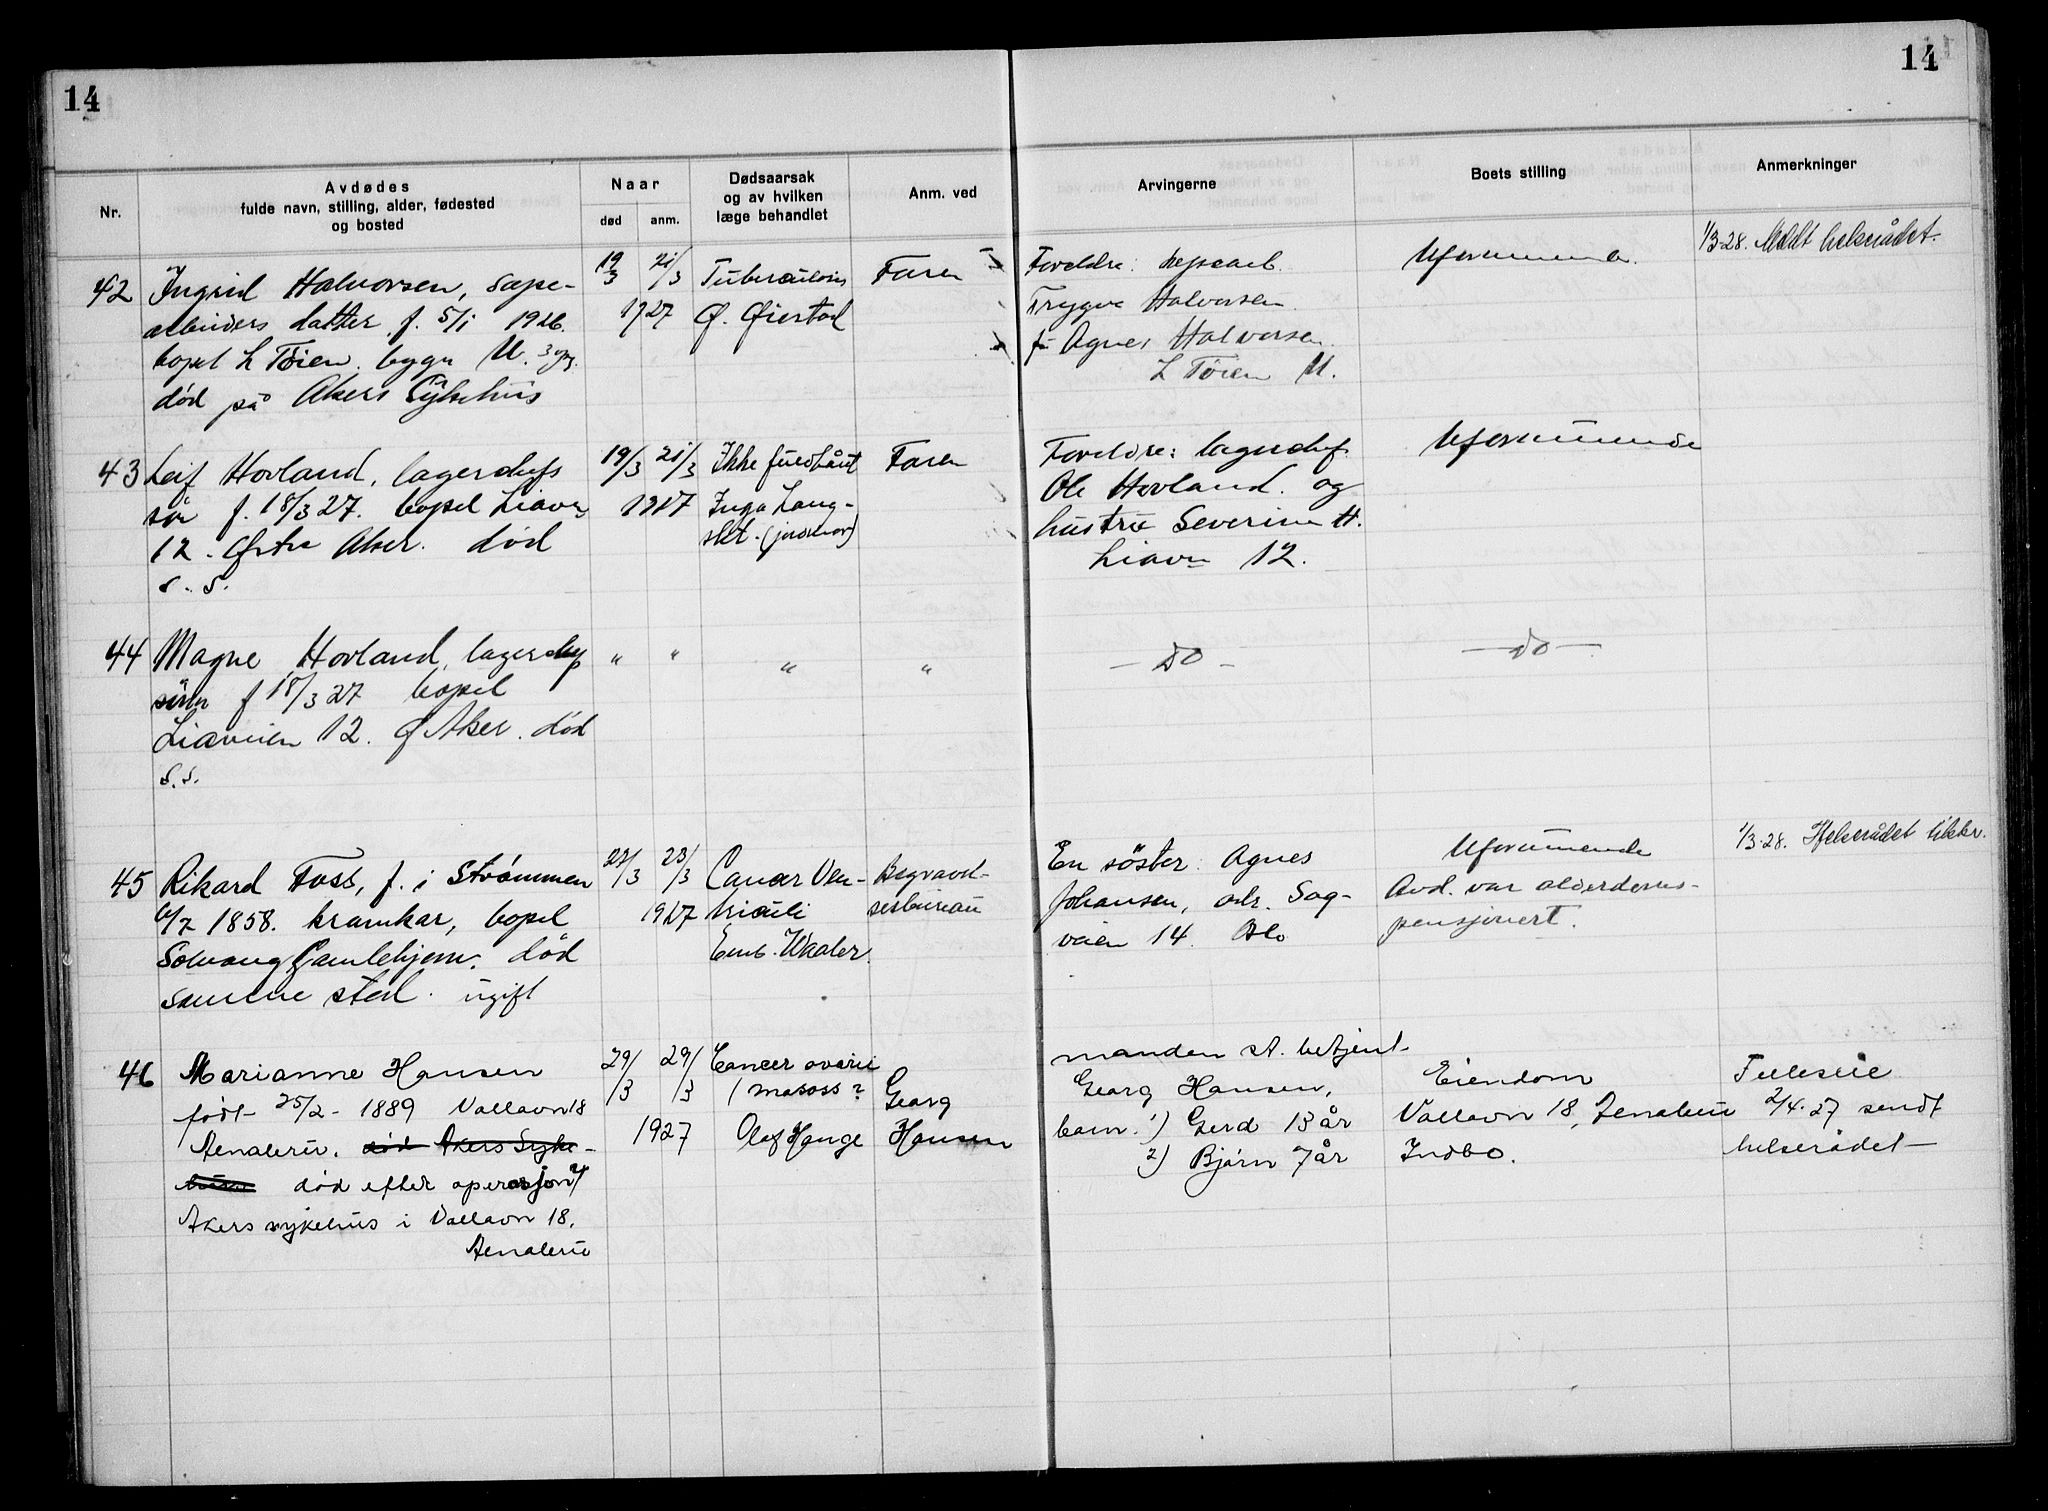 14
14
Nr.
Avdødes
fulde navn, stilling, alder, fødested
og bosted
Naar
død anm.
Dødsaarsak
og av hvilken
læge behandlet
Anm. ved
Arvingerne
Boets stilling
Anmerkninger
42 Ingrid Halvorsen, sæpe-
arbeiders datter f. 5/1 1926.
bopel L Tøien. bygn U.
død på Akers Sykehus
19/3 21/3
1927
Tuberculosis
Ø. Øiestad
Faren
Foreldre:
Trygve Halvorsen
Agnes Halvorsen.
L Tøien U.
Uformuende.
1/3-28. Meldt helserådet.
43 Leif Hovland, lagerchefs
søn f. 18/3 27. bopel Liavn
12. Østre Aker. død
s. s.
19/3 21/3
1927
Ikke fuldbåret
Inga Lang-
slet. (jordmor)
Faren
Foreldre: lagerchef
Ole Hovland. og
hustru Severine H.
Liavn 12.
Uformuende
44 Magne Hovland, lagerchefs
søn f 18/3 27 bopel
Liaveien 12. Ø Aker. død
s.s.
" " " "
- do -
- do -
45 Rikard Foss, f. i Strømmen
6/7 1858. kramkar, bopel
Solvang Gamlehjem. død
samme sted. ugift
22/3 23/3
1927
Cancer Ven-
triculi
Emb. Waaler.
Begravel-
sesbureau
En søster Agnes
Johansen, adr. Sag-
veien 14. Oslo
Uformuende
Avd. var alderdoms-
pensjonert.
1/3-28. Helserådet tilskr.
46 Marianne Hansen
født 25/2 - 1889 Vallavn 18
Tenalerü. død Akers Syke-
huse død efter operasjon på
Akers sykehus i Vallavn 18.
Tenalerü
29/3 29/3
1927
Cancer ovarii
(
Olaf Hauge
Georg
Hansen
manden st. betjent
Georg Hansen,
barn. 1) Gerd 13 år
2) Bjørn 7 år
Eiendom
Vallavn 18, Tenalerü
Indbo.
2/4-27 sendt
helserådet